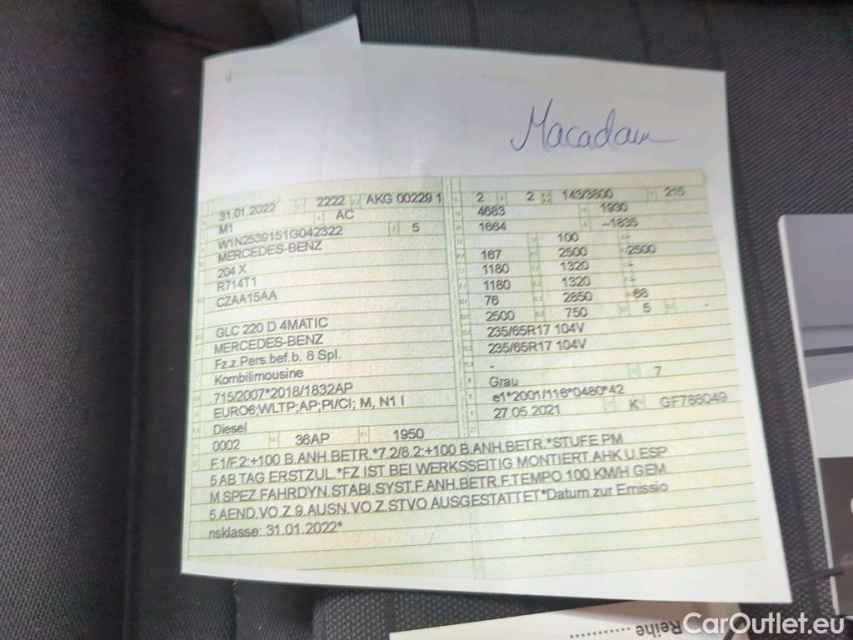 Macadam
31.01.2022 2222 AKG 00229 1
M1 AC
W1N2539151G042322 5
MERCEDES-BENZ
204 X
R714T1
CZAA15AA
GLC 220 D 4MATIC
MERCEDES-BENZ
Fz.z.Pers.bef.b. 8 Spl.
Kombilimousine
715/2007*2018/1832AP
EURO6;WLTP;AP;PI/CI; M, N1 I
Diesel
0002 36AP 1950
2 2 143/3800 215
4683 1930
1664 -1835
100
167 2500 2500
1180 1320
1180 1320
76 2850 68
2500 750 5 -
235/65R17 104V
235/65R17 104V
-
Grau 7
e1*2001/116*0480*42
27.05.2021 K GF788049
F.1/F.2:+100 B.ANH.BETR.*7.2/8.2:+100 B.ANH.BETR.*STUFE PM
5 AB TAG ERSTZUL.*FZ IST BEI WERKSSEITIG MONTIERT.AHK U.ESP
M.SPEZ.FAHRDYN.STABI.SYST.F.ANH.BETR.F.TEMPO 100 KM/H GEM.
5.AEND.VO.Z.9.AUSN.VO.Z.STVO AUSGESTATTET*Datum zur Emissio
nsklasse: 31.01.2022*
Reihe
CarOutlet.eu